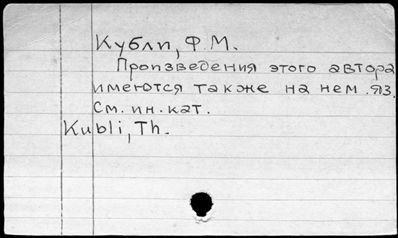 Кубли, Ф.М.
Произведения этого автора
имеются также на нем. яз.
См. ин. кат.
Kubli, Th.